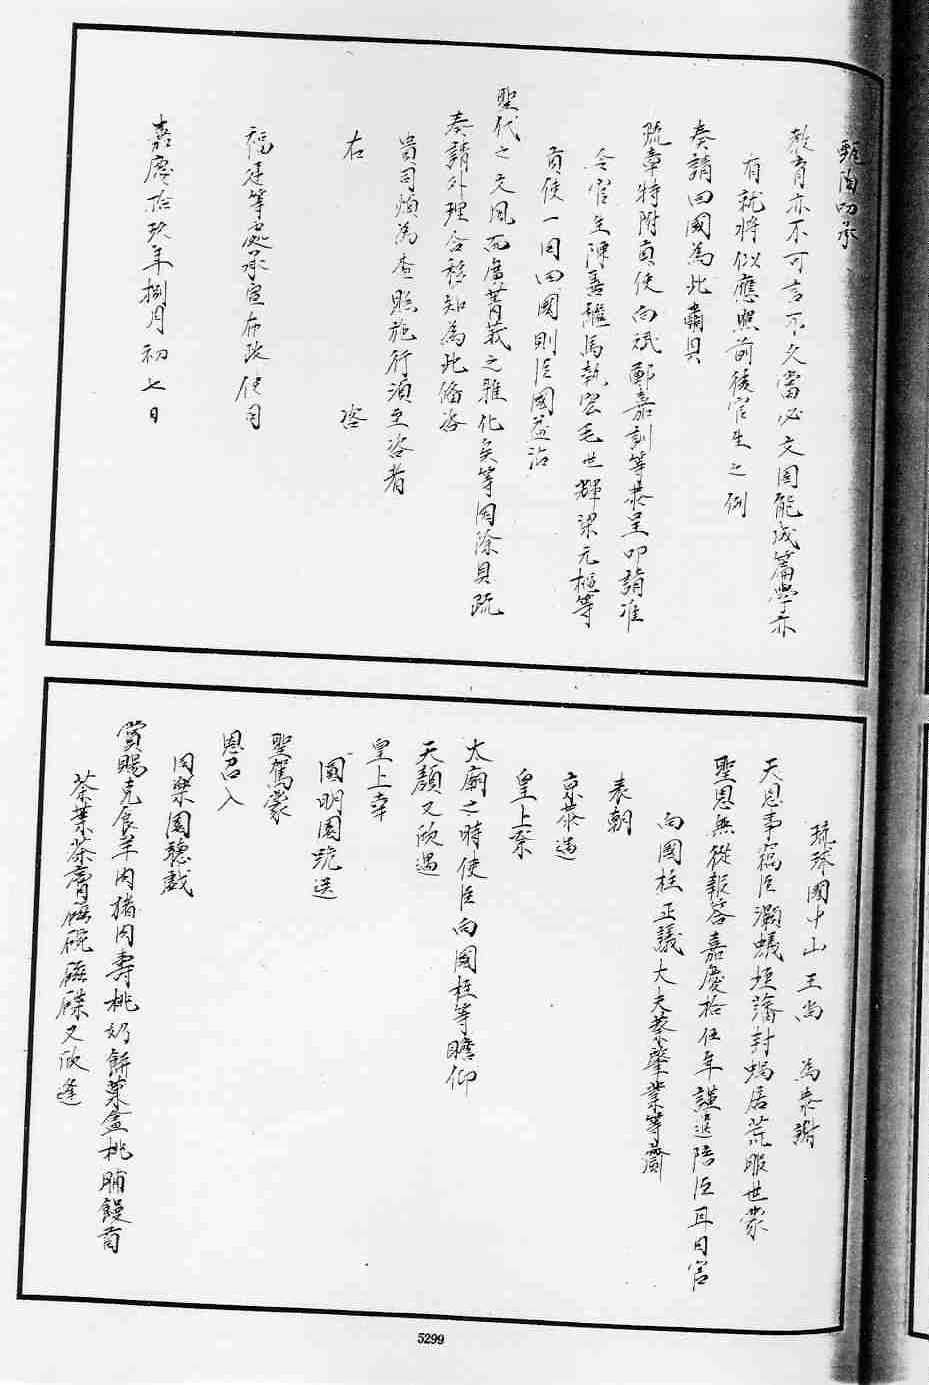 甄陶叨承
教育亦不可言不久當必文因能成篇學亦
有就將似應照前後官生之例
奏請回國為此肅具
疏章特附貢使向斌鄭嘉訓等恭呈叩請准
令官生陳善繼馬執宏毛世輝梁元樞等
貢使一同回國則臣國益沾
聖代之文風而廣菁莪之雅化矣等因除具疏
奏請外理合移知為此備咨
貴司煩為查照施行須至咨者
右 咨
福建等處承宣布政使司
嘉慶拾玖年捌月初七日
琉球國中山王尚 為恭謝
天恩事竊臣灝蟻垤藩封蝸居荒服世蒙
聖恩無從報答嘉慶拾伍年謹遣陪臣耳目官
向國柱正議大夫蔡肇業等齎
表朝
京恭遇
皇上祭
太廟之時使臣向國柱等瞻仰
天顏又欣遇
皇上幸
圓明園跪送
聖駕蒙
恩召入
同樂園聽戲
賞賜克食羊肉猪肉壽桃奶餅菓盒桃脯饅首
茶葉茶膏磁碗磁碟又欣逢
5299